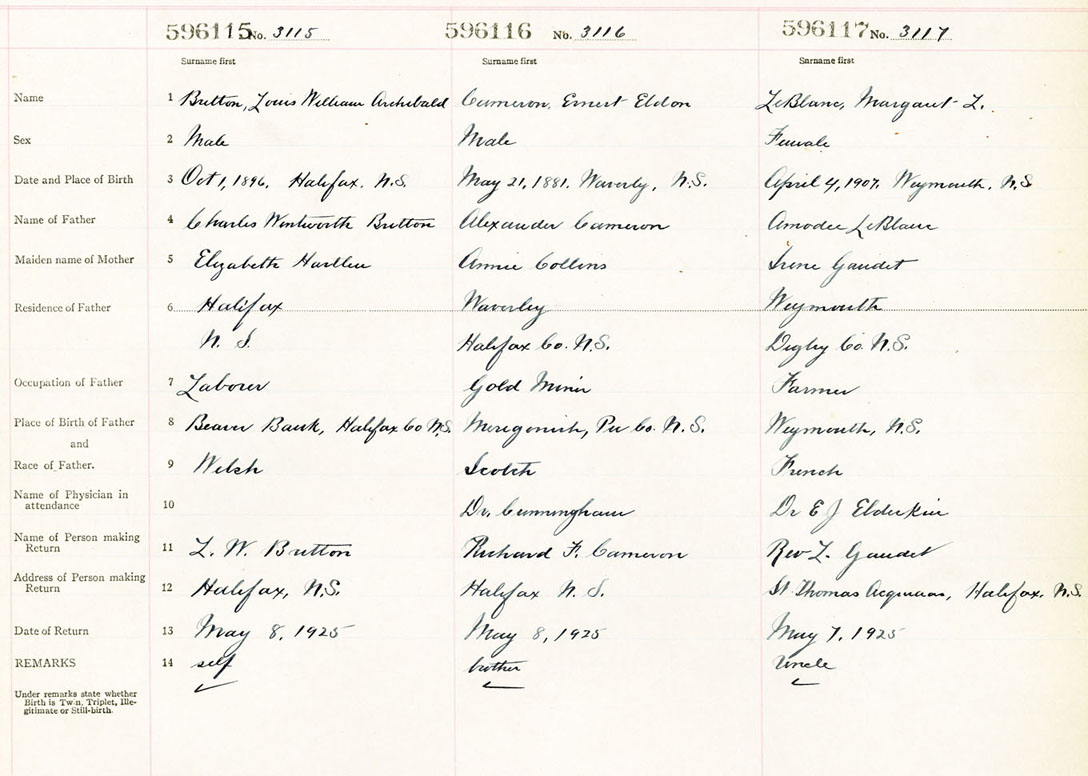 596115 No. 3115 596116 No. 3116 596117 No. 3117
Surname first Surname first Surname first
Name 1 Britton, Louis William Archibald Cameron, Ernest Eldon LeBlanc, Margaret L.
Sex 2 Male Male Female
Date and Place of Birth 3 Oct 1, 1896. Halifax. N.S. May 21, 1881. Waverly, N.S. April 4, 1907. Weymouth, N.S
Name of Father 4 Charles Wentworth Britton Alexander Cameron Amadee LeBlanc
Maiden name of Mother 5 Elizabeth Annie Collins Irene Gaudet
Residence of Father 6 Halifax Waverley Weymouth
N. S. Halifax Co. N.S. Digby Co. N.S.
Occupation of Father 7 Laborer Gold Miner Farmer
Place of Birth of Father 8 Beaver Bank, Halifax Co N.S. Merigonish, Co. N.S. Weymouth, N.S.
and
Race of Father. 9 Welsh Scotch French
Name of Physician in
attendance 10 Dr. Cunningham Dr E J Elderkin
Name of Person making
Return 11 L. W. Britton Richard F. Cameron Rev L. Gaudet
Address of Person making
Return 12 Halifax, N.S. Halifax N. S. St. Thomas Halifax. N.S.
Date of Return 13 May 8, 1925 May 8, 1925 May 7, 1925
REMARKS 14 self brother Uncle
Under remarks state whether
Birth is Twin, Triplet, Ille-
gitimate or Still-birth.